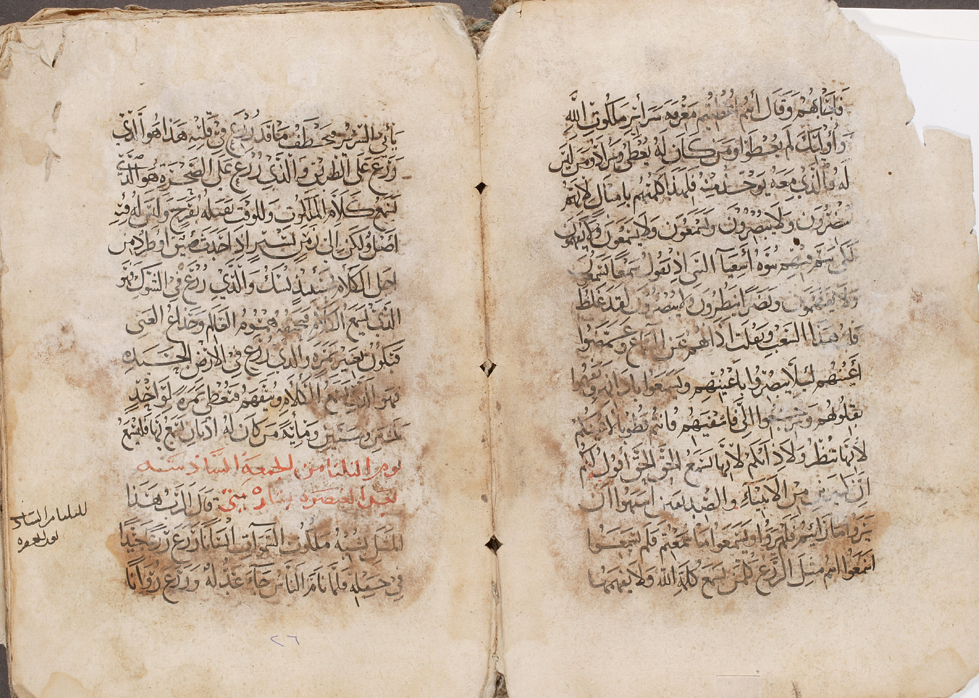 فاجابهم وقال انتم اعطيتم معرفة سرائر ملكوت الله
واولئك لم يعطوا ومن كان له يعطى ويزاد ومن ليس
له فالذي معه يوخذ منه فلهذا اكلمهم بامثال لانهم
يبصرون ولا يبصرون ويسمعون ولا يسمعون ولا يفهمون
لكي تتم فيهم نبوه أشعيا النبي اذ يقول سمعا تسمعون
ولا تفهمون ونظرا تنظرون ولا تبصرون لقد غلظ
قلب هذا الشعب وثقلت اذانهم عن السماع وغمضوا
أعينهم لئلا يبصروا باعينهم ويسمعوا باذانهم ويفهموا
بقلوبهم ويرجعوا الي فاشفيهم فانتم طوبا لاعينكم
لانها تنظر ولاذانكم لانها تسمع الحق الحق اقول لكم
ان كثيرين من الانبياء والصديقين اشتهوا ان
يروا ما رأيتم فلم يروا ويسمعوا ما سمعتم فلم يسمعوا
اسمعوا انتم مثل الزرع كل من يسمع كلمة الله ولا يفهمها
يأتي الشرير فيخطف ما قد زرع في قلبه هذا هو الذي
زرع على الطريق والذي زرع على الصخره هو الذي
يسمع كلام الملكوت وللوقت يقبله بفرح وليس له فيه
اصل ولكن الى زمن يسير اذا حدث ضيق او طرد من
اجل الكلام فيشك والذي زرع في الشوك هو
الذي يسمع الكلام هموم العالم وخداع الغنى
فتكون بغير ثمره والذي زرع في الارض الجيده
فهو الذي يسمع الكلام ويتفهم فتعطى ثمره لواحد
ثلثين وستين ومائة من كان له اذنان تسمع بها فليسمع
يوم الثلثا من الجمعه السادسه
بعد العنصره بشاره متى قال الرب هذا
المثل يشبه ملكوت السموات انسانا زرع زرعا جيدا
في حقله فلما نام الناس جاء عدوله وزرع زوانا
للثلثا من السادسه
بعد العنصره
٢٦